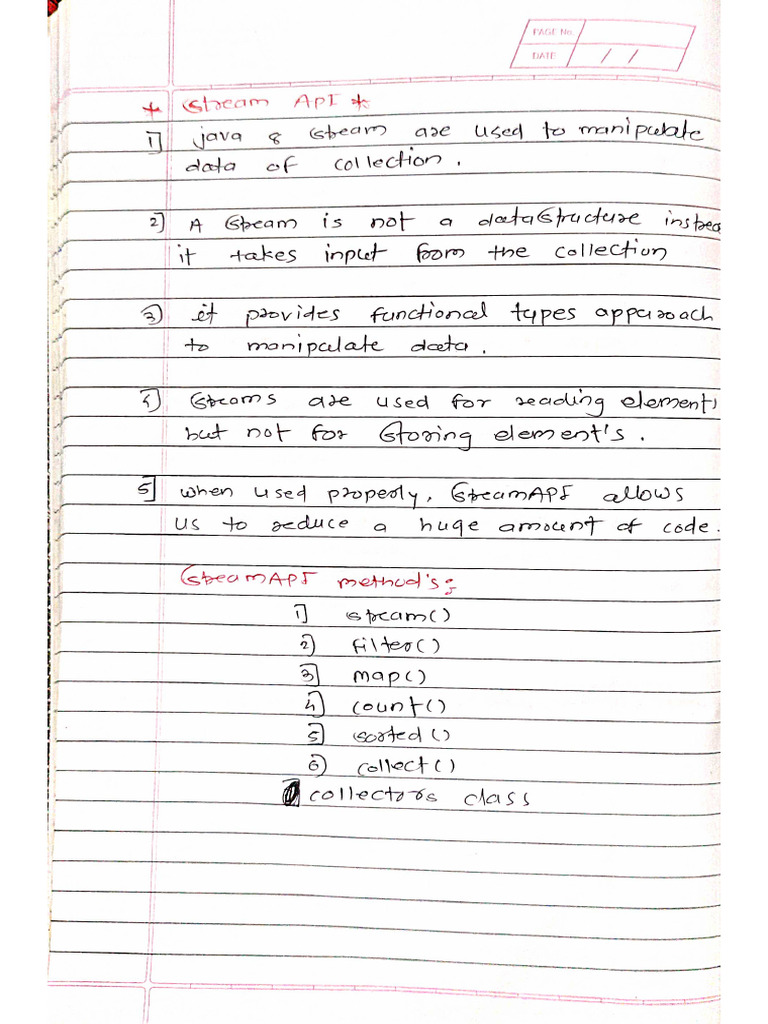 PAGE No.
DATE / /
* Stream API *
1] java 8 stream are used to manipulate
data of collection.
2] A stream is not a datastructure instea
it takes input from the collection
3) it provides functional types apparoach
to manipulate data.
4) Streams are used for reading element,
but not for storing element's.
5] when used properly, StreamAPI allows
us to reduce a huge amount of code.
StreamAPI method's:
1] stream()
2) filter()
3] map()
4] count()
5] sorted()
6) collect()
collectors class